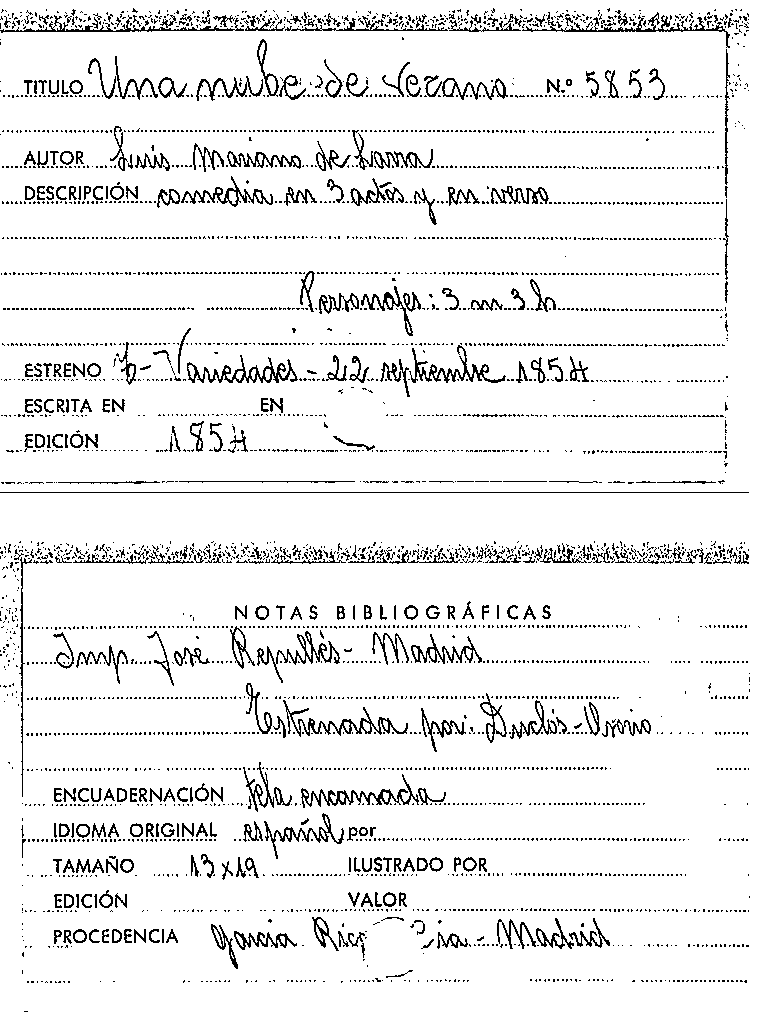 TITULO Una nube de verano N.º 5853
AUTOR Luis Mariano de Larra
DESCRIPCIÓN comedia en 3 actos y en verso
Personajes: 3 m 3 h
ESTRENO T- Variedades - 22 septiembre 1854
ESCRITA EN EN
EDICIÓN 1854
NOTAS BIBLIOGRÁFICAS
Imp. José Repullés - Madrid
Estrenada por: Duclós - Osorio
ENCUADERNACIÓN tela encarnada
IDIOMA ORIGINAL español por
TAMAÑO 13x19 ILUSTRADO POR
EDICIÓN VALOR
PROCEDENCIA García Rico - Madrid